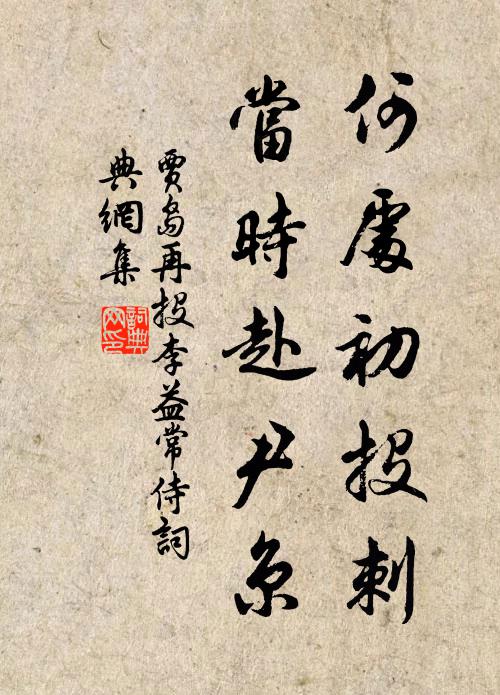 何處初投刺
當時赴尹京
賈島再投李益常侍詞
典網集
詞典网印